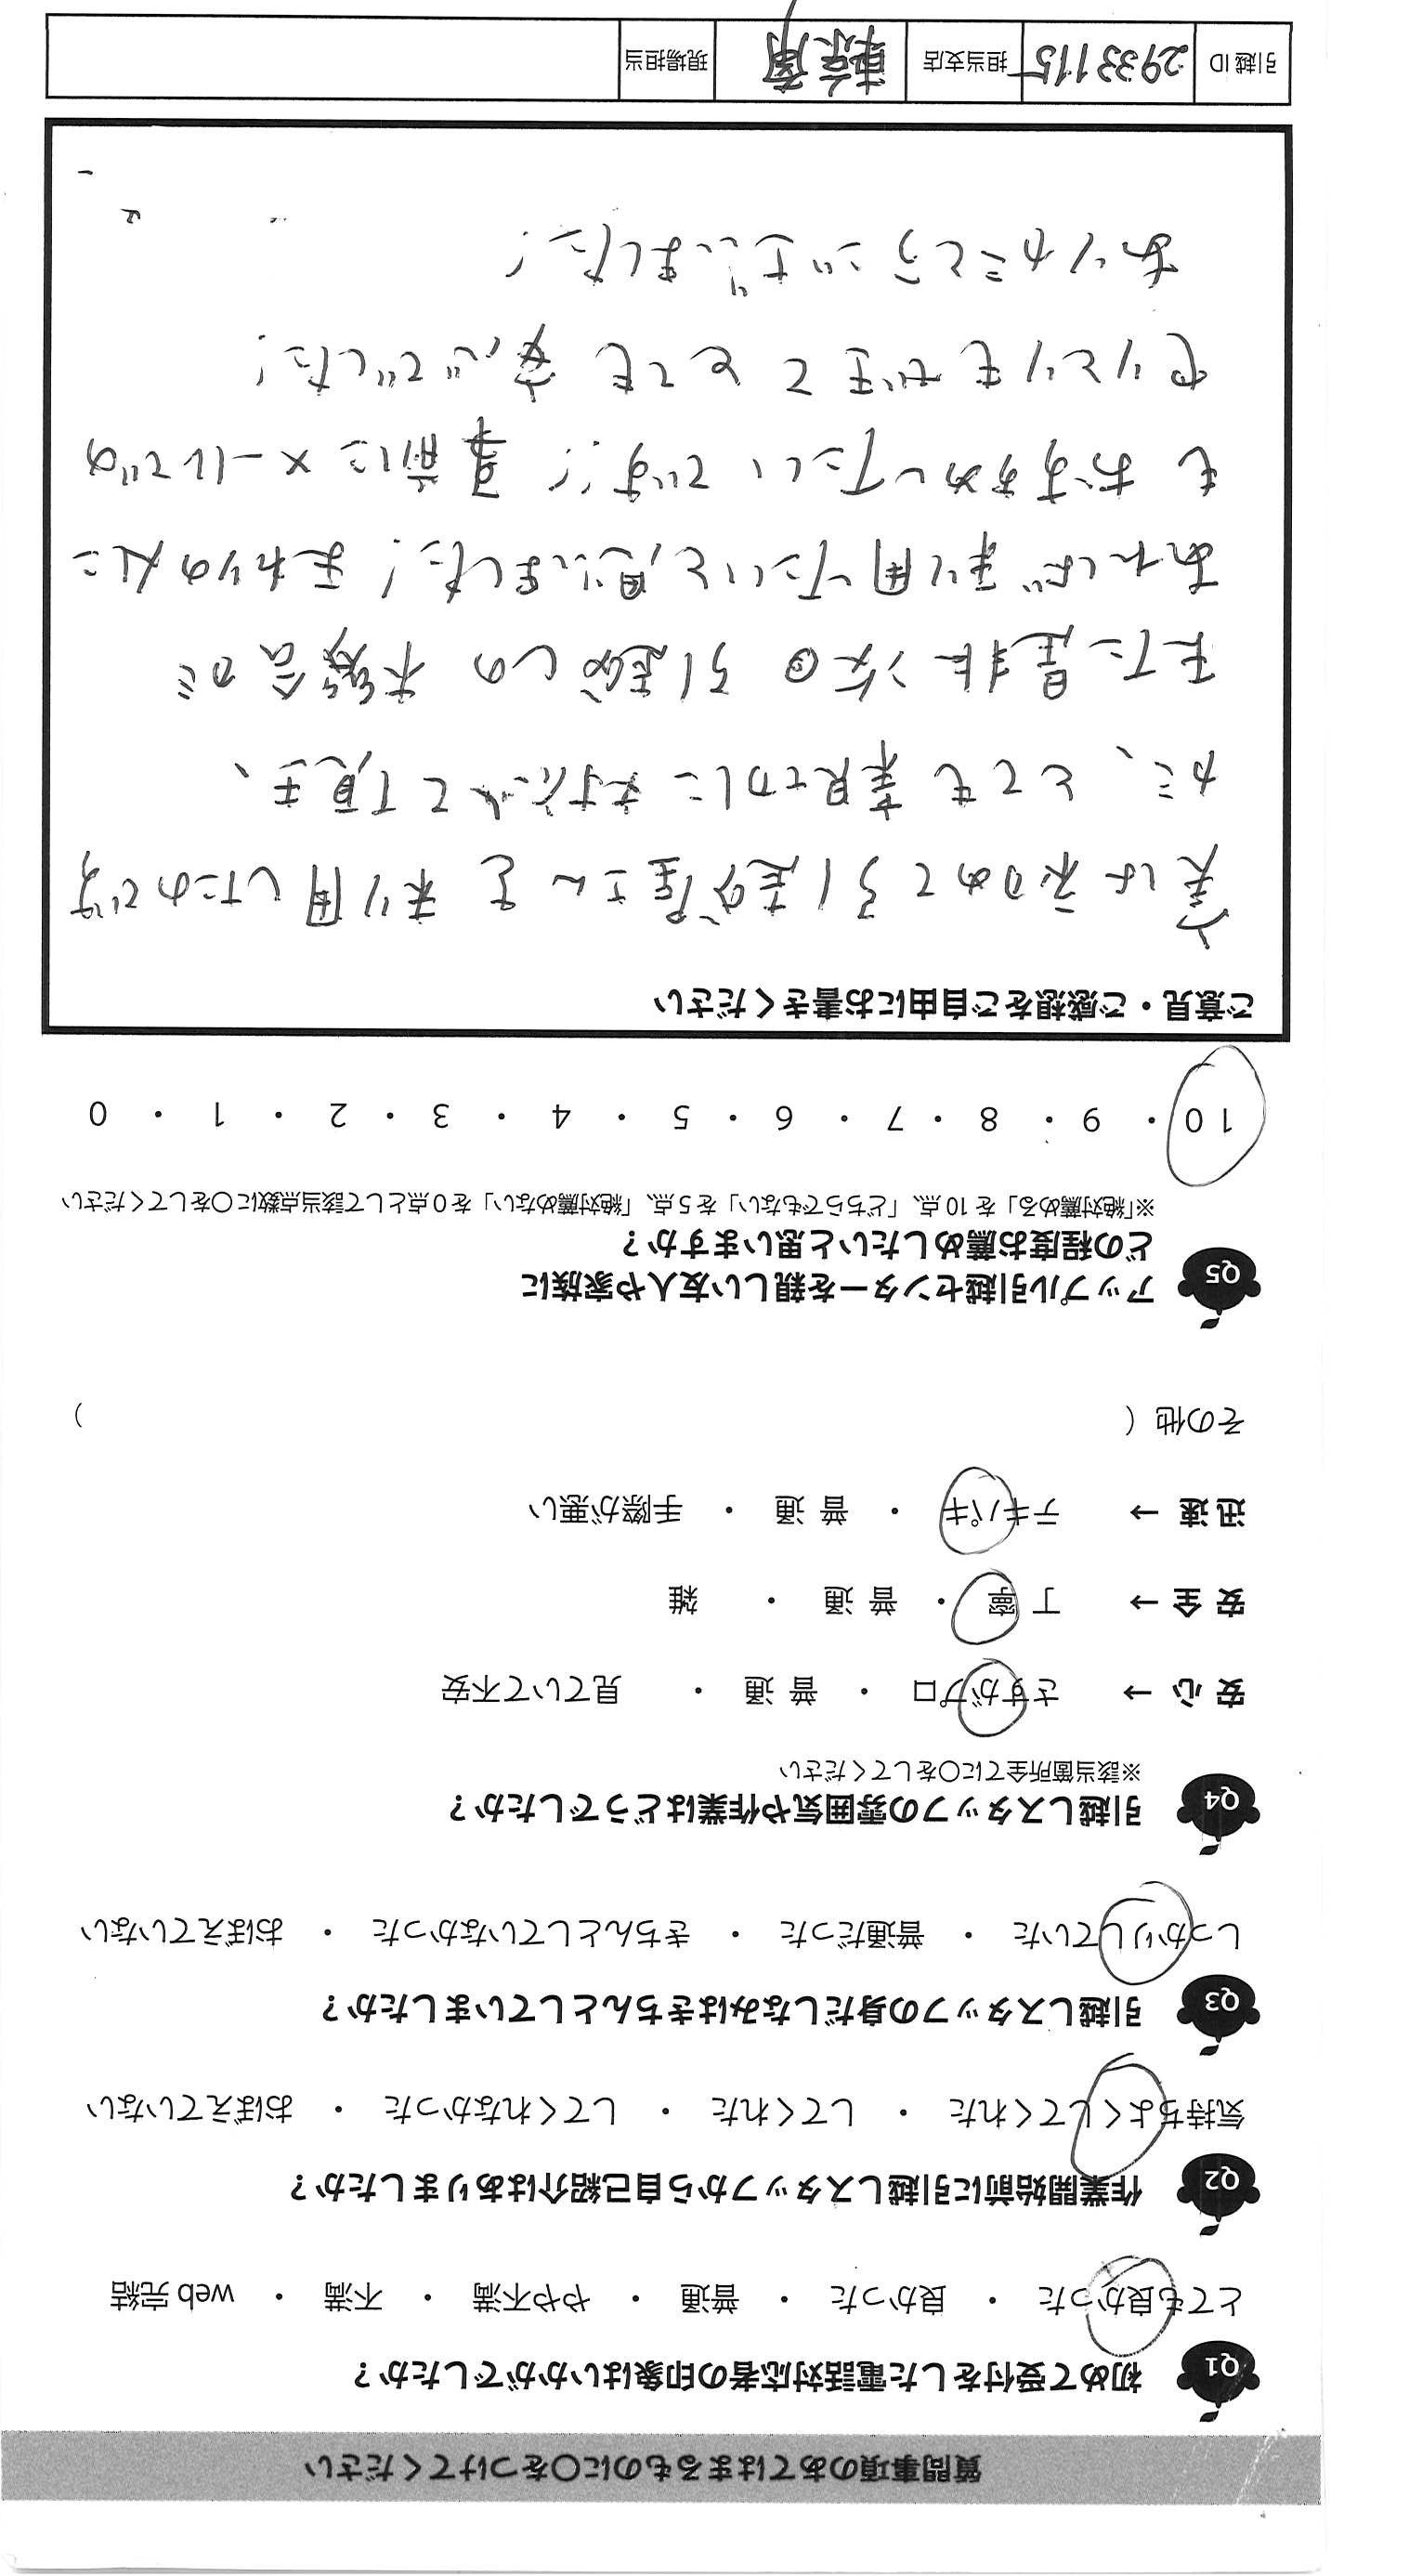 質問事項のあてはまるものに〇をつけてください
Q1 初めて受付をした電話対応者の印象はいかがでしたか？
とても良かった ・ 良かった ・ 普通 ・ やや不満 ・ 不満 ・ web完結
Q2 作業開始前に引越しスタッフから自己紹介はありましたか？
気持ちよくしてくれた ・ してくれた ・ してくれなかった ・ おぼえていない
Q3 引越しスタッフの身だしなみはきちんとしていましたか？
しっかりしていた ・ 普通だった ・ きちんとしていなかった ・ おぼえていない
Q4 引越しスタッフの雰囲気や作業はどうでしたか？
※該当箇所全てに〇をしてください
安心 → さすがプロ ・ 普通 ・ 見ていて不安
安全 → 丁寧 ・ 普通 ・ 雑
迅速 → テキパキ ・ 普通 ・ 手際が悪い
その他（ ）
Q5 アップル引越センターを親しい友人や家族に
どの程度お薦めしたいと思いますか？
※「絶対薦める」を10点、「どちらでもない」を5点、「絶対薦めない」を0点として該当点数に〇をしてください
10 ・ 9 ・ 8 ・ 7 ・ 6 ・ 5 ・ 4 ・ 3 ・ 2 ・ 1 ・ 0
ご意見・ご感想をご自由にお書きください
実は初めて引越屋さんを利用したのです
が、とても親切に対応して頂き、
また是非次回引越しの機会が
あれば利用したいと思いました！まわりの人に
もおすすめしたいです！！事前にメールでの
やりとりもできてとても安心でした！
ありがとうございました！
引越ID 2933115 担当支店 東京南 現場担当